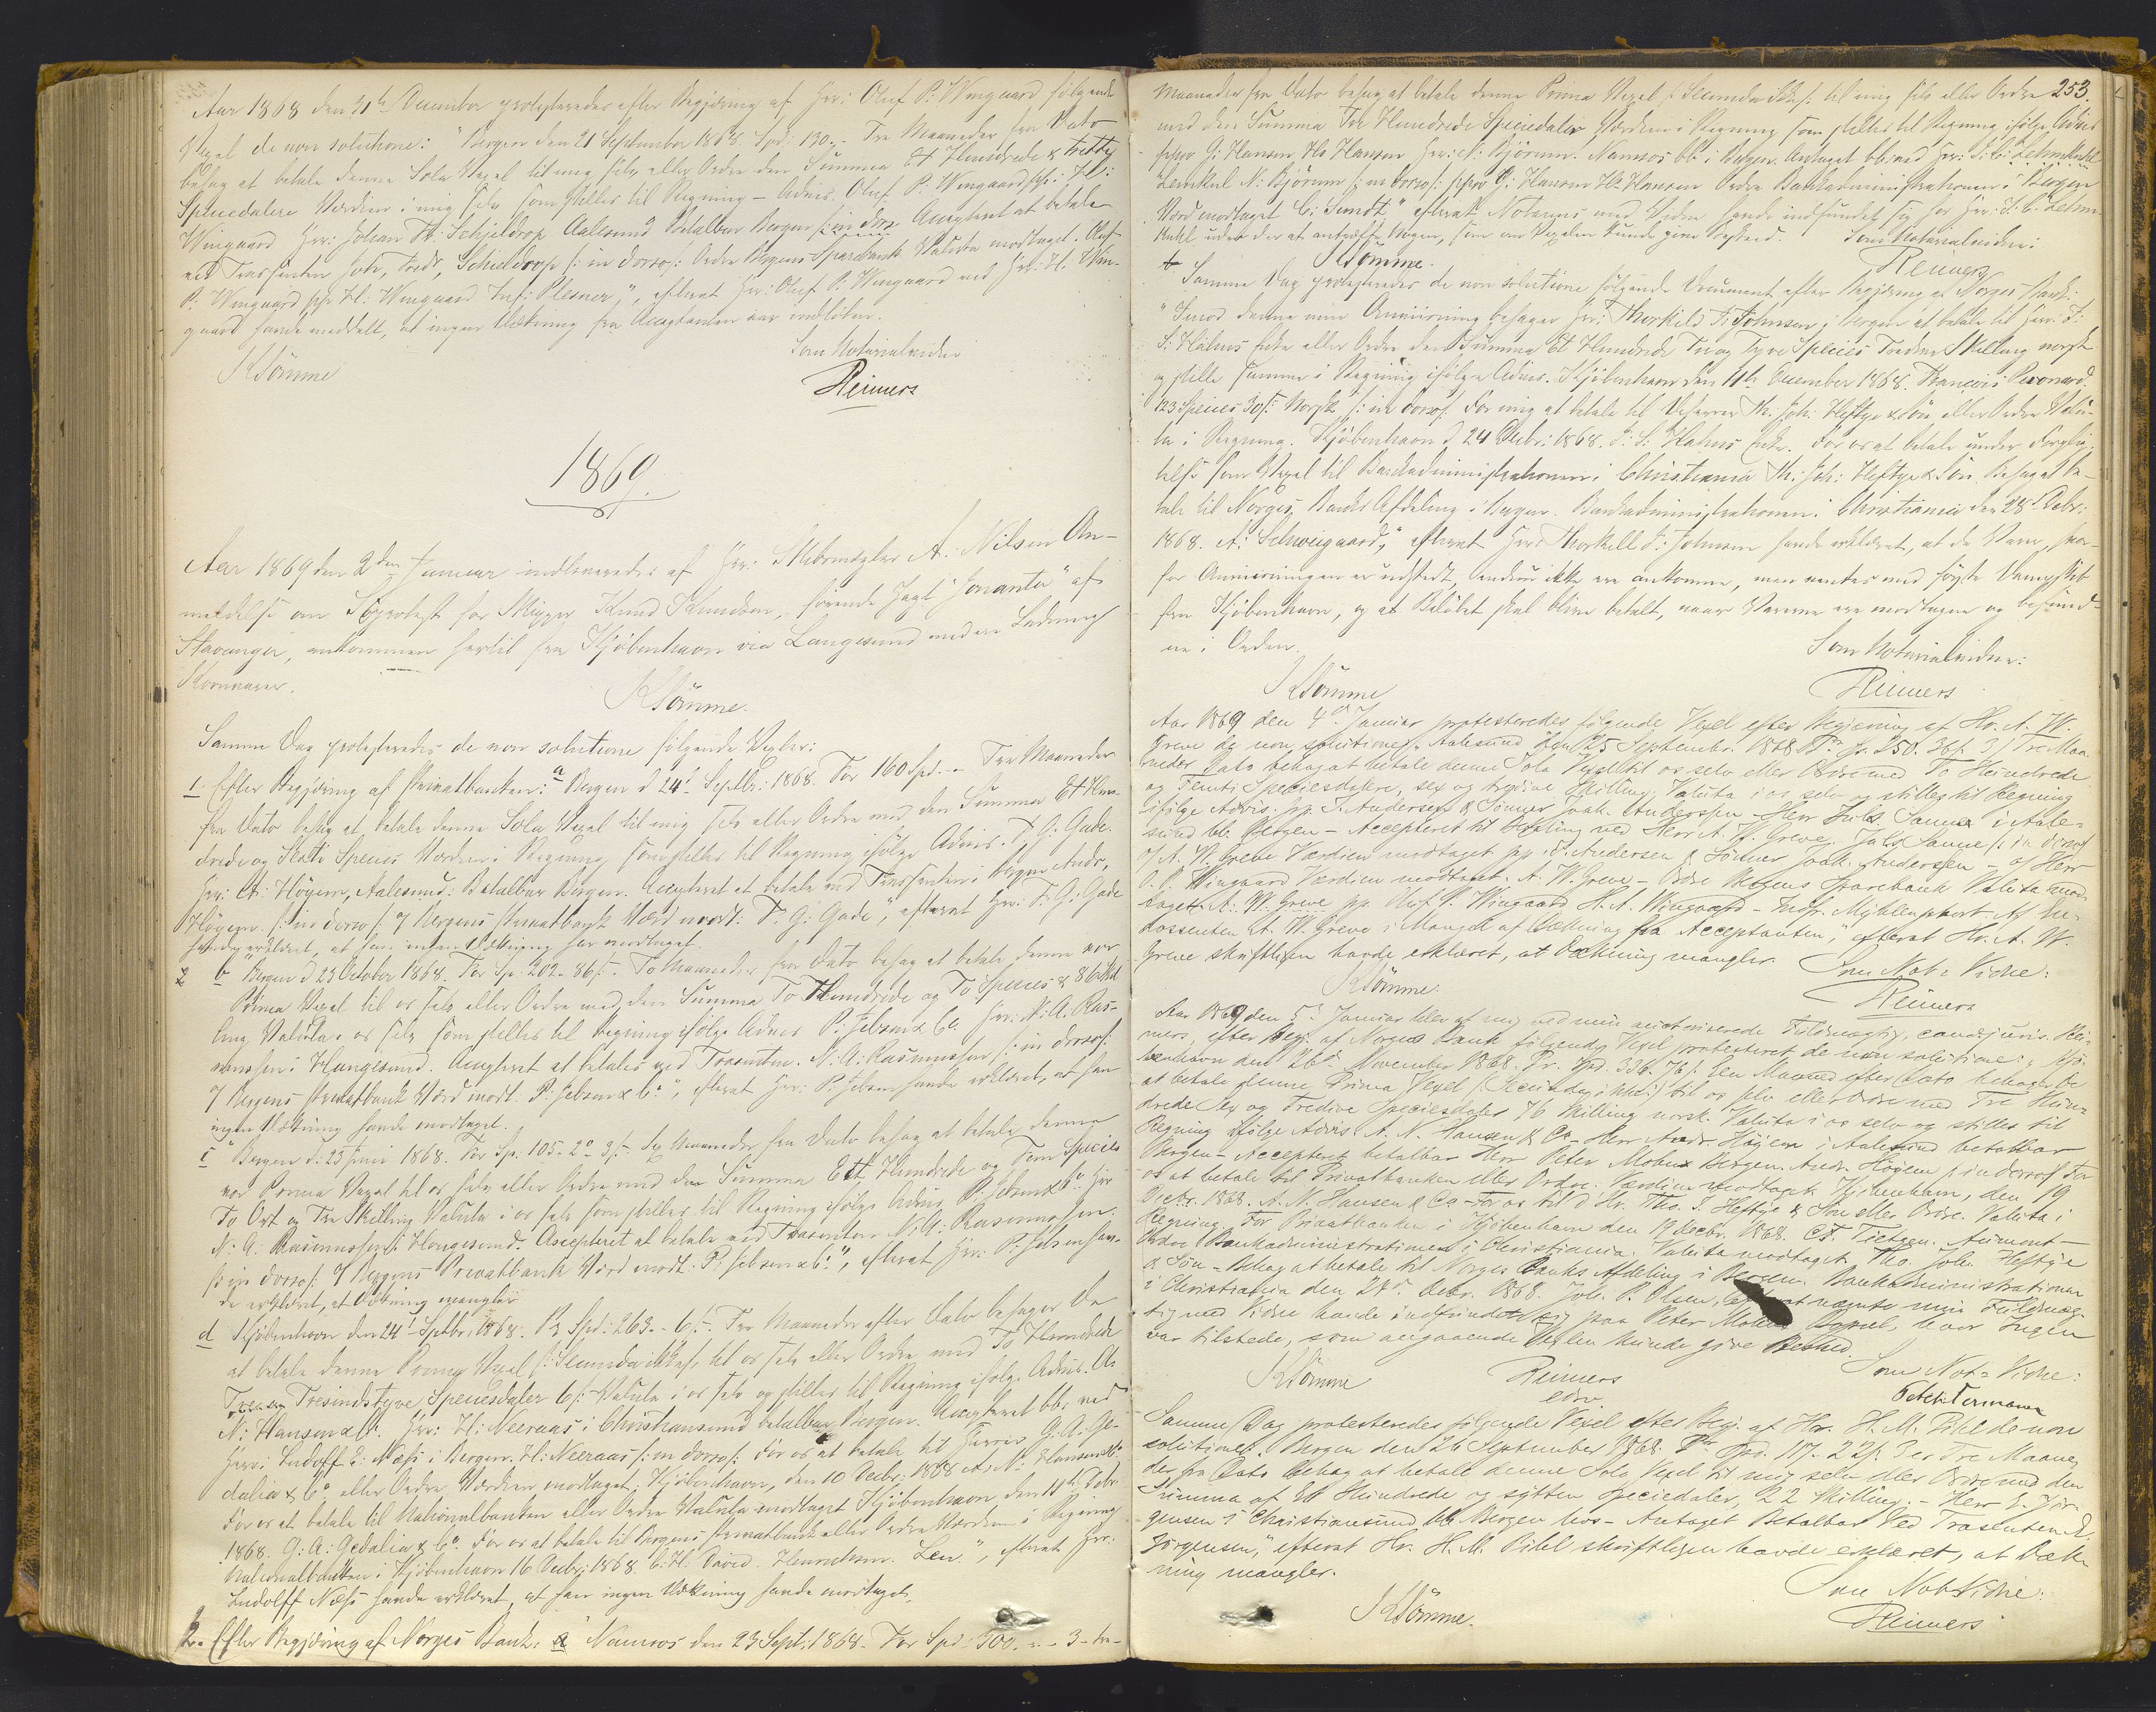 Aar 1868 den 31te December protesteredes efter Begjæring af Hrr: Oluf P: Wingaard følgende
Vexel de non solutione: "Bergen den 21 September 1868. Spd: 130.- Tre Maaneder fra Dato
behag at betale denne Sola Vexel til mig selv eller Ordre den Summa Et Hundrede & tretty
Speciedalere Værdien i mig selv som stilles til Regning - Advis. Oluf P. Wingaard ppr: H:
Wingaard Hrr: Johan Fr: Schjeldrop Aalesund Betalbar Bergen /: in dorso Accepteret at betale
ved Trassenten Joh, Fredr, Schieldrop /: in dorso /: Ordre Bergens Sparebank Valuta modtaget. Oluf
P: Wingaard ppr H: Wingaard Inf: Plesner", efterat Hrr: Oluf P: Wingaard ved Hrr: H. Win-
gaard havde meddelt, at ingen Dækning fra Acceptanten var indløben.
Som Notarialvidne
KSømme
Reimers
1869.
Aar 1869 den 2den Januar indleveredes af Hrr: Skibsmægler A: Nilsen An-
meldelse om Søprotest for Skipper Knud Knudsen, førende Jagt "Jonanta" af
Stavanger, ankommen hertil fra Kjøbenhavn via Langesund med en Ladning
Kornvarer.
KSømme.
Samme Dag protesteredes de non solutione følgende Vexler:
1. Efter Begjæring af Privatbanken: a Bergen d 24d Septbr: 1868. For 160 Spd. - Tre Maaneder
fra Dato behag at betale denne Sola Vexel til mig selv eller Ordre med den Summa Et Hun-
drede og Sexti Species Værdien i Regning som stilles til Regning ifølge Advis. F. G: Gade.
Hrr: A: Høyem, Aalesund: Betalbar Bergen. Accepteret at betale ved Trassenten i Bergen Andr,
Høyem. /: in dorso /: o/ Bergens Privatbank Værd modt: F. G: Gade", efterat Hrr: F: G: Gade
havde erklæret, at han ingen Dækning har modtaget.
2 b "Bergen d 23 October 1868. For Sp: 202 - 86 ß. To Maaneder fra Dato behag at betale denne vor
Prima Vexel til os selv eller Ordre med den Summa To Hundrede og To Species & 86 Skil
ling Valuta i os selv som stilles til Regning ifølge Advis P: Jebsen & Co. Hrr: N: A. Ras-
mussen i Haugesund. Accepteret at betales ved Trassenten. N: A: Rasmussen /: in dorso /:
o/ Bergens Privatbank Værd modt. P: Jebsen & Co", efterat Hrr: P: Jebsen havde erklæret, at han
ingen Dækning havde modtaget.
c "Bergen d: 23 Juni 1868. For Sp. 105. 2o 3/-. Sex Maaneder fra Dato behag at betale denne
vor Prima Vexel til os selv eller Ordre med den Summa Ett Hundrede og Fem Species
To Ort og Tre Skilling Valuta i os selv som stilles til Regning ifølge Advis P: Jebsen & Co Hrr
N: A: Rasmussen i Haugesund. Accepteret at betale ved Trassenten N: A: Rasmussen.
/: in dorso /: o/ Bergens Privatbank Værd modt. P: Jebsen & Co", efterat Hrr: P: Jebsen hav-
de erklæret, at Dækning mangler
d Kjøbenhavn den 24d Septbr: 1868. Pr Spd: 263. - 6/-. Tre Maaneder efter Dato behager De
at betale denne Prima Vexel /: Secunda ikke /: til os selv eller Ordre med To Hundrede
Tre og Tresindstyve Speciesdaler 6/- Valuta i os selv og stilles til Regning ifølge Advis. A.
N: Hansen & Co. Hrr: H: Neeraas i Christiansund betalbar Bergen. Accepteret bbr ved
Herr: Ludolff E: Næss i Bergen. H: Neeraas /: in dorso /: For os at betale til Herrer G: A: Ge-
dalia & Co eller Ordre Værdien modtaget Kjøbenhavn, den 10 Decbr: 1868 A: N: Hansen & Co
For os at betale til Nationalbanken eller Ordre Valuta modtaget Kjøbenhavn den 11te Debr
1868. G: A: Gedalia & Co. For os at betale til Bergens Privatbank eller Ordre Værdien i Regning
Nationalbanken i Kjøbenhavn 16 Decbr: 1868. C: H: David. Henrichsen. Levy", efterat Hrr:
Ludolff Næss havde erklæret, at han ingen Dækning havde modtaget.
2. Efter Begjæring af Norges Bank: a Namsos den 23 Sept: 1868. For Spd: 300. - 3 - tre -
253.
Maaneder fra Dato behag at betale denne Prima Vexel /: Secunda ikke /: til mig selv eller Ordre
med den Summa Tre Hundrede Speciedaler Værdien i Regning som stilles til Regning ifølge Advis
ppr G: Hansen Hs Hansen Hrr: N: Bjørum. Namsos bb: i Bergen. Antaget bb: ved Hrr: J: C: Lehmkuhl
Lemkul N: Bjørum /: in dorso /: ppr G: Hansen Hs Hansen Ordre Bankadministrationen i Bergen
Værd modtaget C: Sundt", efterat Notarius med Vidne havde indfundet sig hos Hrr: J: C: Lehm-
kuhl uden der at antræffe Nogen, som om Vexelen kunde give Besked.
Som Notarialvidne:
KSømme.
Reimers
b Samme Dag protesteredes de non solutione følgende Document efter Begjæring af Norges Bank:
"Imod denne min Anviisning behager Hrr: Thorkild F: Johnsen i Bergen at betale til Hrr. J:
S: Hahns Enke eller Ordre den Summa Et Hundrede Tre og Tyve Species Tredive Skilling norsk
og stille Summa i Regning ifølge Advis. Kjøbenhavn den 11te December 1868. Francois Peronard.
123 Species 30/: Norsk /: in dorso /: For mig at betale til DHerrer Th. Joh. Heftye & Søn eller Ordre Valu-
ta i Regning. Kjøbenhavn d 24 Decbr: 1868. J: S: Hahns Enke. For os at betale under Forplig-
telse som Vexel til Bankadministrationen i Christiania Th. Joh: Heftye & Søn Behag at be-
tale til Norges Banks Afdeling i Bergen. Bankadministrationen i Christiania den 28d Debr:
1868. A: Schweigaard", efterat Hrr: Thorkill F: Johnsen havde erklæret, at de Varer, hvor-
for Anviisningen er udstedt, endnu ikke ere ankomne, men ventes med første Dampskib
fra Kjøbenhavn, og at Beløbet skal blive betalt, naar Varerne ere modtagne og befund-
ne i Orden.
Som Notarialvidne:
KSømme
Reimers
Aar 1869 den 4d. Januar protesteredes følgende Vexel efter Begjæring af Hr. A. W.
Greve de non solutione: "Aalesund den 25 September 1868 Pr Sp. 250. 36/. 3/ Tre Maa-
neder Dato behag at betale denne Sola Vexel til os selv eller Ordre med To Hundrede
og Femti Speciesdalere, sex og tredive Skilling, Valuta i os selv og stilles til Regning
ifølge Advis. pp. J. Andersen & Sønner Joak. Anderssen - Herr Jules Sanne i Aale-
sund bb. Bergen - Accepteret til Betaling ved Herr A. W. Greve. Jules Sanne /: in dorso
o/ A. W. Greve Værdien modtaget pp. J. Andersen & Sønner Joak. Anderssen - o/ Herr
O. P. Wingaard Værdien modtaget. A. W. Greve - Ordre Bergens Sparebank Valuta mod-
taget. A: W. Greve pp. Oluf P. Wingaard H. A. Wingaard - Indfr. Myhlenphort. Af En-
dossenten A. W. Greve i Mangel af Dækning fra Acceptanten", efterat Hr. A. W.
Greve skriftligen havde erklæret, at Dækning mangler.
Som Not: Vidne:
KSømme.
Reimers
Aar 1869 den 5d. Januar blev af mig ved min autoriserede Fuldmægtig, cand. juris. Rei-
mers, efter Begj. af Norges Bank følgende Vexel protesteret de non solutione: "Kjø-
benhavn den 26d November 1868. Pr. Spd. 336. 76/. Een Maaned efter Dato behager De
at betale denne Prima Vexel (: Secunda ikke :) til os selv eller Ordre med Tre Hun-
drede Sex og Tredive Speciesdaler 76 Skilling norsk. Valuta i os selv og stilles til
Regning ifølge Advis. A. N. Hansen & Co - Herr Andr. Høiem i Aalesund betalbar
Bergen - Accepteret betalbar Herr Peter Mohus Bergen. Andr. Høiem /: in dorso /: For
os at betale til Privatbanken eller Ordre. Værdien modtaget. Kjøbenhavn, den 19
Decbr. 1868. A. N. Hansen & Co - For os til d'Hr. Tho. J. Heftye & Søn eller Ordre. Valuta i
Regning. For Privatbanken i Kjøbenhavn den 19 Decbr. 1868. C. F. Tietgen. Aumont -
Ordre Bankadministrationen i Christiania. Valuta modtaget. Tho. Joh. Heftye
& Søn - Behag at betale til Norges Banks Afdeling i Bergen. Bankadministrationen
i Christiania den 28d. Debr. 1868. Joh. P. Olsen", efterat nævnte min Fuldmæg-
tig med Vidne havde indfundet sig paa Peter Mohus Bopæl, hvor Ingen
var tilstede, som angaaende Vexlen kunde give Besked.
Som Not: Vidne:
KSømme
Reimers
Samme Dag protesteredes følgende Vexel efter Begj. af Hr. H. M. Pihl de non
solutione: "Bergen den 26 September 1868. Pr Spd. 117. 22/. 3 er Tre Maane-
der fra Dato behag at betale denne Sola Vexel til mig selv eller Ordre med den
Summa af Et Hundrede og sytten Speciedaler, 22 Skilling. - Herr E. Jør-
gensen i Christiansund bb Bergen hos - Antaget Betalbar ved Trasenten E.
Jørgensen", efterat Hr. H. M. Pihl skriftligen havde erklæret, at Dæk-
ning mangler.
Som Not Vidne:
KSømme.
Reimers